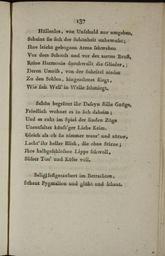 137
Hüllenlos, von Unschuld nur umgeben,
Scheint sie sich der Schönheit unbewußt;
Ihre leicht gebognen Arme schweben
Vor dem Schoos und vor der zarten Brust.
Reine Harmonie durchwallt die Glieder,
Deren Umriß, von der Scheitel nieder
Zu den Sohlen, hingeathmet fliegt,
Wie sich Well' in Welle schmiegt.
Schön begränzt ihr Daseyn stille Gnüge,
Friedlich wohnet es in sich daheim;
Und es ruht im Spiel der linden Züge
Unentfaltet künft'ger Liebe Keim.
Gleich als ob sie nimmer traur' und zürne,
Lacht ihr heller Blick, die ebne Stirne;
Ihre halbgeschloßnen Lippe schwoll,
Süßer Tön' und Küsse voll.
Selig festgezaubert im Betrachten,
Schaut Pygmalion und glüht und schaut.